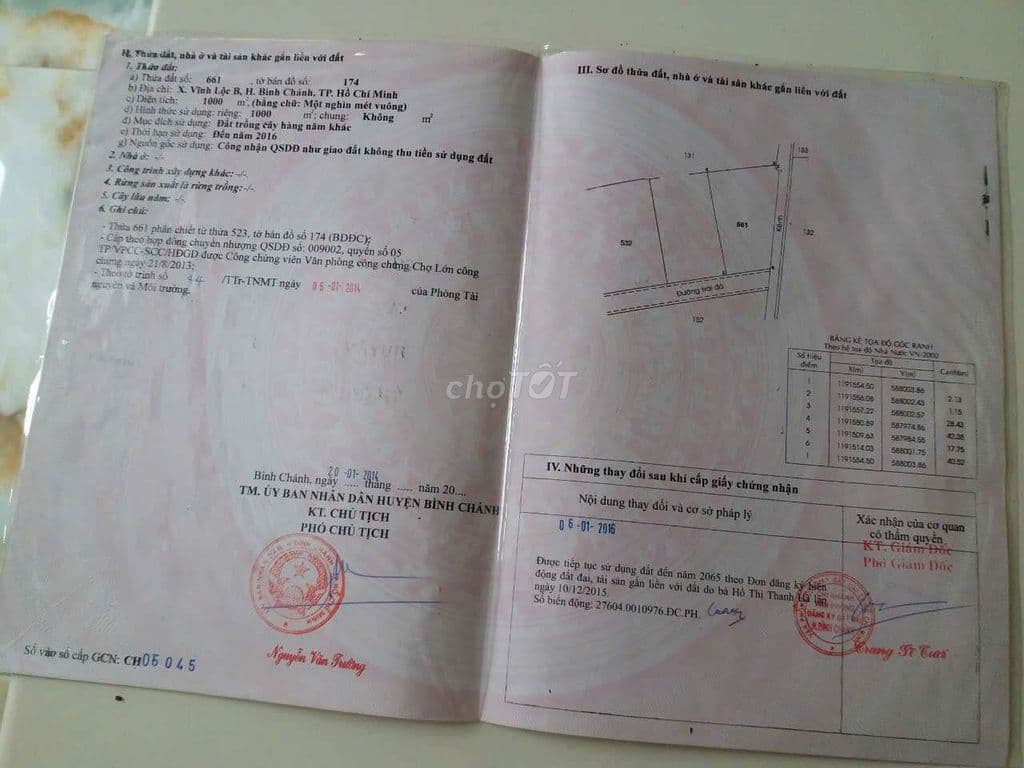 II. Thửa đất, nhà ở và tài sản khác gắn liền với đất
1. Thửa đất:
a) Thửa đất số: 661 , tờ bản đồ số: 174
b) Địa chỉ: X. Vĩnh Lộc B, H. Bình Chánh, TP. Hồ Chí Minh
c) Diện tích: 1000 m², (bằng chữ: Một nghìn mét vuông)
d) Hình thức sử dụng: riêng: 1000 m²; chung: Không m²
đ) Mục đích sử dụng: Đất trồng cây hàng năm khác
e) Thời hạn sử dụng: Đến năm 2016
g) Nguồn gốc sử dụng: Công nhận QSDĐ như giao đất không thu tiền sử dụng đất
2. Nhà ở: -/-
3. Công trình xây dựng khác: -/-
4. Rừng sản xuất là rừng trồng: -/-
5. Cây lâu năm: -/-
6. Ghi chú:
- Thửa 661 phân chiết từ thửa 523, tờ bản đồ số 174 (BĐĐC);
- Cấp theo hợp đồng chuyển nhượng QSDĐ số: 009002, quyển số 05
TP/VPCC-SCC/HĐGD được Công chứng viên Văn phòng công chứng Chợ Lớn công
chứng ngày 21/8/2013;
- Theo tờ trình số 44 /TTr-TNMT ngày 06-01-2014 của Phòng Tài
nguyên và Môi trường.
20-01-2014
Bình Chánh, ngày ..... tháng ..... năm 20....
TM. ỦY BAN NHÂN DÂN HUYỆN BÌNH CHÁNH
KT. CHỦ TỊCH
PHÓ CHỦ TỊCH
Nguyễn Văn Trường
Số vào sổ cấp GCN: CH05045
III. Sơ đồ thửa đất, nhà ở và tài sản khác gắn liền với đất
133
131
132
661
Kênh
532
Đường trải đá
152
BẢNG KÊ TỌA ĐỘ GÓC RANH
Theo hệ tọa độ Nhà Nước VN-2000
Số hiệu điểm Tọa độ Cạnh(m)
X(m) Y(m)
1 1191554.50 588003.86
2 1191556.08 588002.43 2.13
3 1191557.22 588002.57 1.15
4 1191550.89 587974.86 28.43
5 1191509.63 587984.56 42.38
6 1191514.03 588001.75 17.75
1 1191554.50 588003.86 40.52
IV. Những thay đổi sau khi cấp giấy chứng nhận
Nội dung thay đổi và cơ sở pháp lý
Xác nhận của cơ quan
có thẩm quyền
06-01-2016
KT. Giám Đốc
Phó Giám Đốc
Được tiếp tục sử dụng đất đến năm 2065 theo Đơn đăng ký biến
động đất đai, tài sản gắn liền với đất do bà Hồ Thị Thanh Hà lập
ngày 10/12/2015.
Số biến động: 27604.0010976.ĐC.PH.
chợTỐT